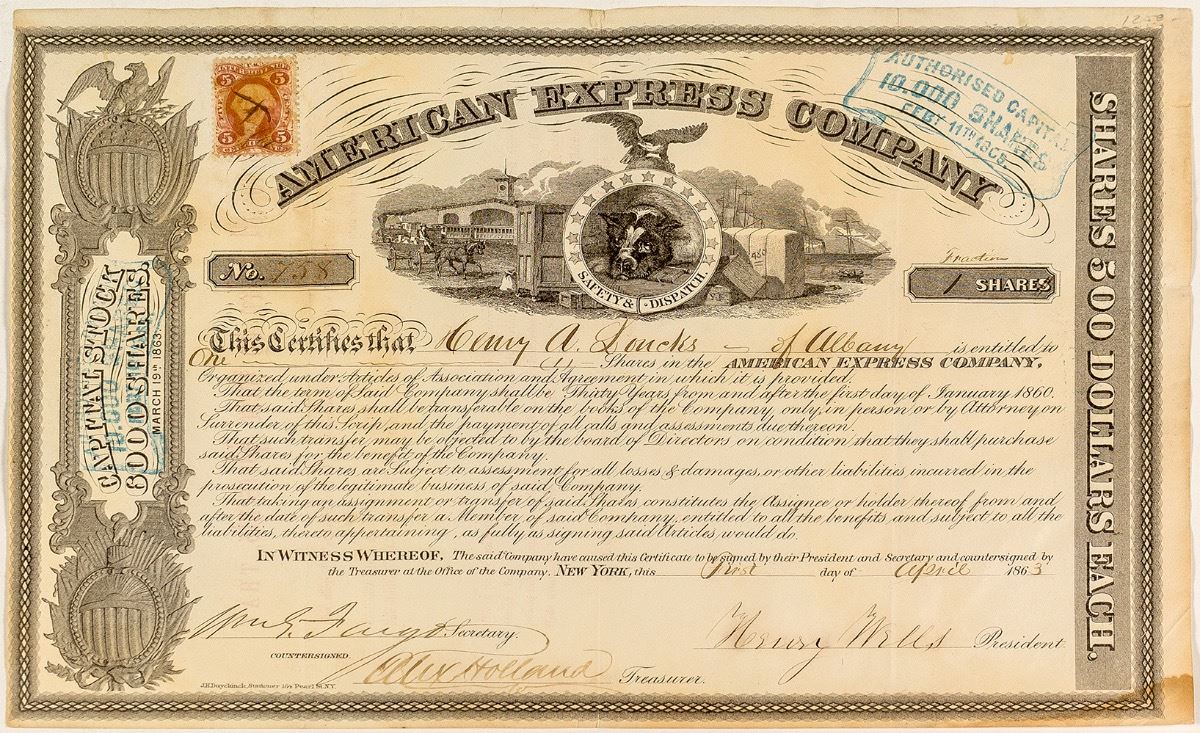 AMERICAN EXPRESS COMPANY
5 5
5 5
AUTHORISED CAPITAL
10.000 SHARES
FEBY 11TH 1865
CAPITAL STOCK
8000 SHARES.
MARCH 19th 1863
SHARES 500 DOLLARS EACH.
SAFETY & DISPATCH.
No. 58
Fraction
1 SHARES
This Certifies that Henry A. Loucks of Albany is entitled to
One Shares in the AMERICAN EXPRESS COMPANY,
Organized under Articles of Association and Agreement in which it is provided.
That the term of Said Company shall be Thirty Years from and after the first day of January 1860.
That said Shares shall be transferable on the books of the Company only, in person or by Attorney on
Surrender of this Scrip, and the payment of all calls and assessments due thereon.
That such transfer may be objected to by the board of Directors on condition that they shall purchase
said Shares for the benefit of the Company.
That said Shares are Subject to assessment for all losses & damages, or other liabilities incurred in the
prosecution of the legitimate business of said Company.
That taking an assignment or transfer of said Shares constitutes the Assignee or holder thereof from and
after the date of such transfer a Member of said Company, entitled to all the benefits, and subject to all the
liabilities, thereto appertaining, as fully as signing said Articles would do.
IN WITNESS WHEREOF, The said Company have caused this Certificate to be signed by their President and Secretary and countersigned by
the Treasurer at the Office of the Company. NEW YORK, this First day of April 1863
Wm G. Fargo Secretary.
Henry Wells President.
COUNTERSIGNED.
Alex Holland Treasurer.
J.H. Duyckinck, Stationer 164 Pearl St. N.Y.